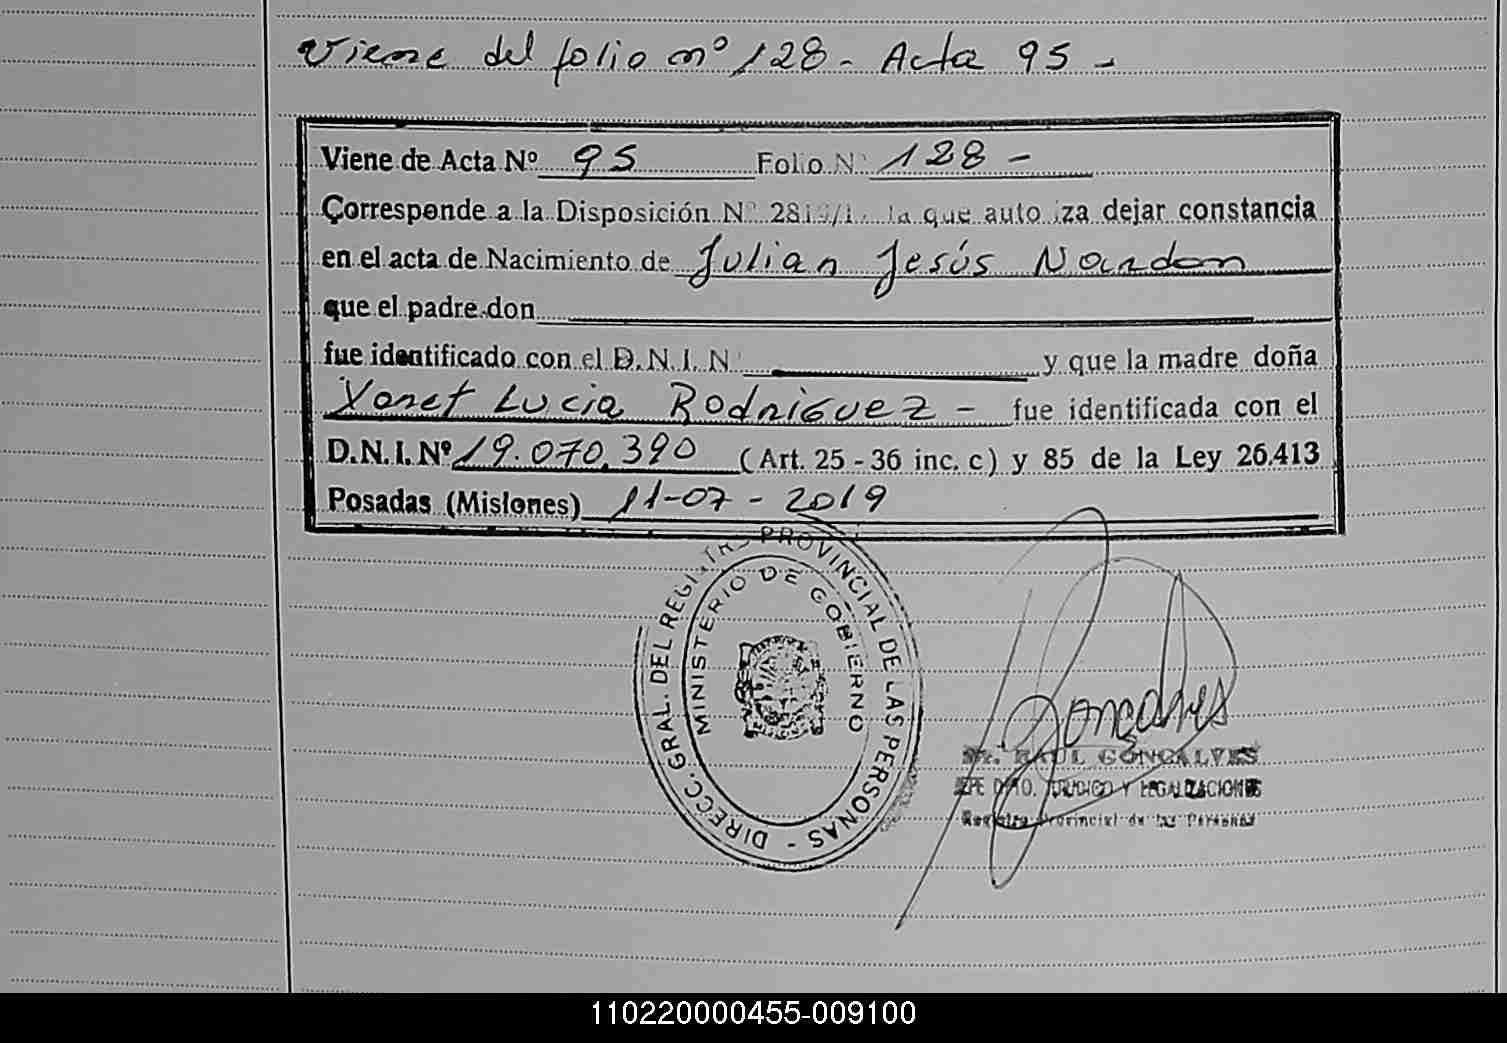 Viene del folio nº 128 - Acta 95 -
Viene de Acta Nº 95 Folio Nº 128 -
Corresponde a la Disposición Nº la que autoriza dejar constancia
en el acta de Nacimiento de Julian Jesús
que el padre don
fue identificado con el D.N.I. Nº y que la madre doña
Yanet Lucia Rodriguez - fue identificada con el
D.N.I. Nº 19.070.390 (Art. 25 - 36 inc. c) y 85 de la Ley 26.413
Posadas (Misiones) 11-07-2019
DIRECC. GRAL. DEL REGISTRO PROVINCIAL DE LAS PERSONAS -
MINISTERIO DE GOBIERNO
MISIONES
Goncalves
RAUL GONCALVES
JEFE DPTO. JURIDICO Y LEGALIZACIONES
Registro Provincial de las Personas
110220000455-009100